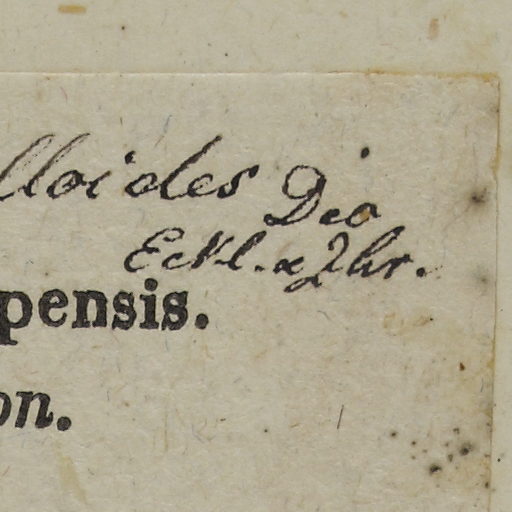 lloides Dio
Eckl. & Zhr.
pensis.
on.